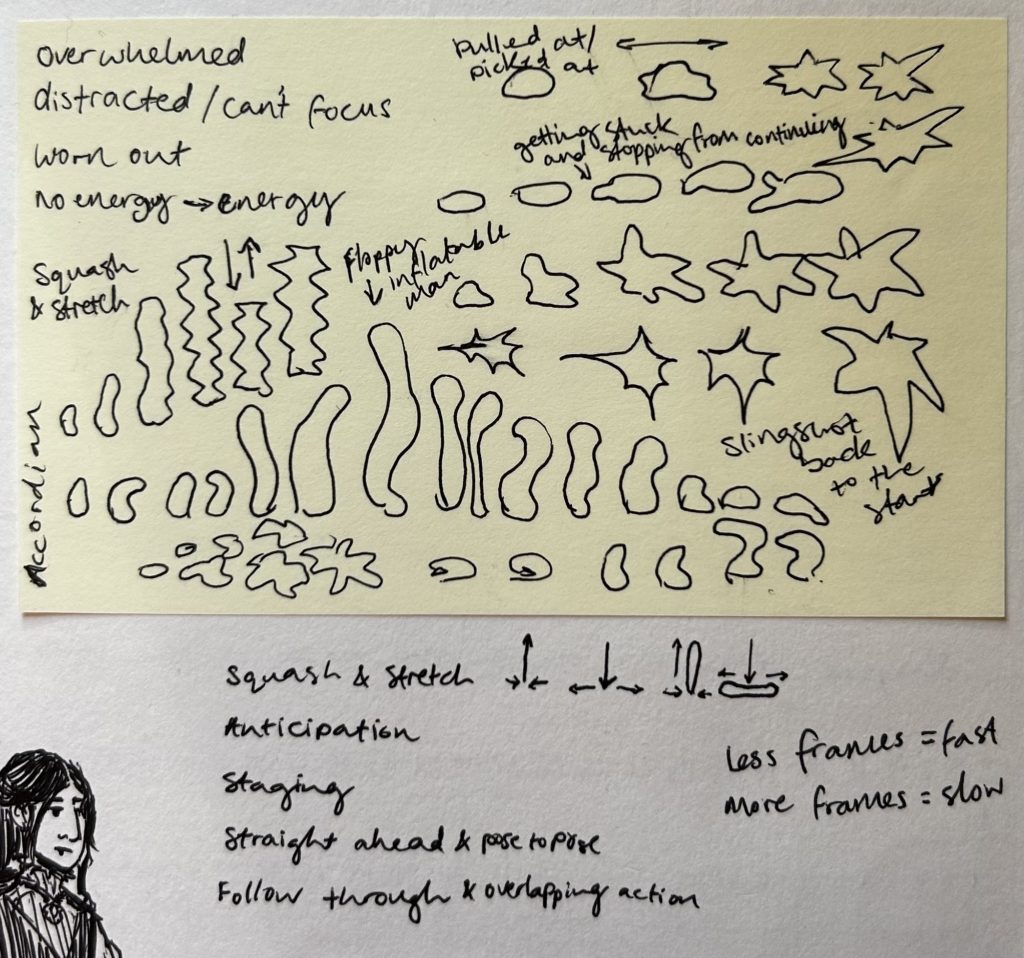 overwhelmed
distracted/can't focus
worn out
no energy → energy
pulled at/
picked at
getting stuck
and stopping from continuing
Squash
& stretch
floppy
inflatable
man
Accordian
slingshot
back
to the
start
Squash & stretch
Anticipation
Staging
Straight ahead & pose to pose
Follow through & overlapping action
Less frames = fast
More frames = slow